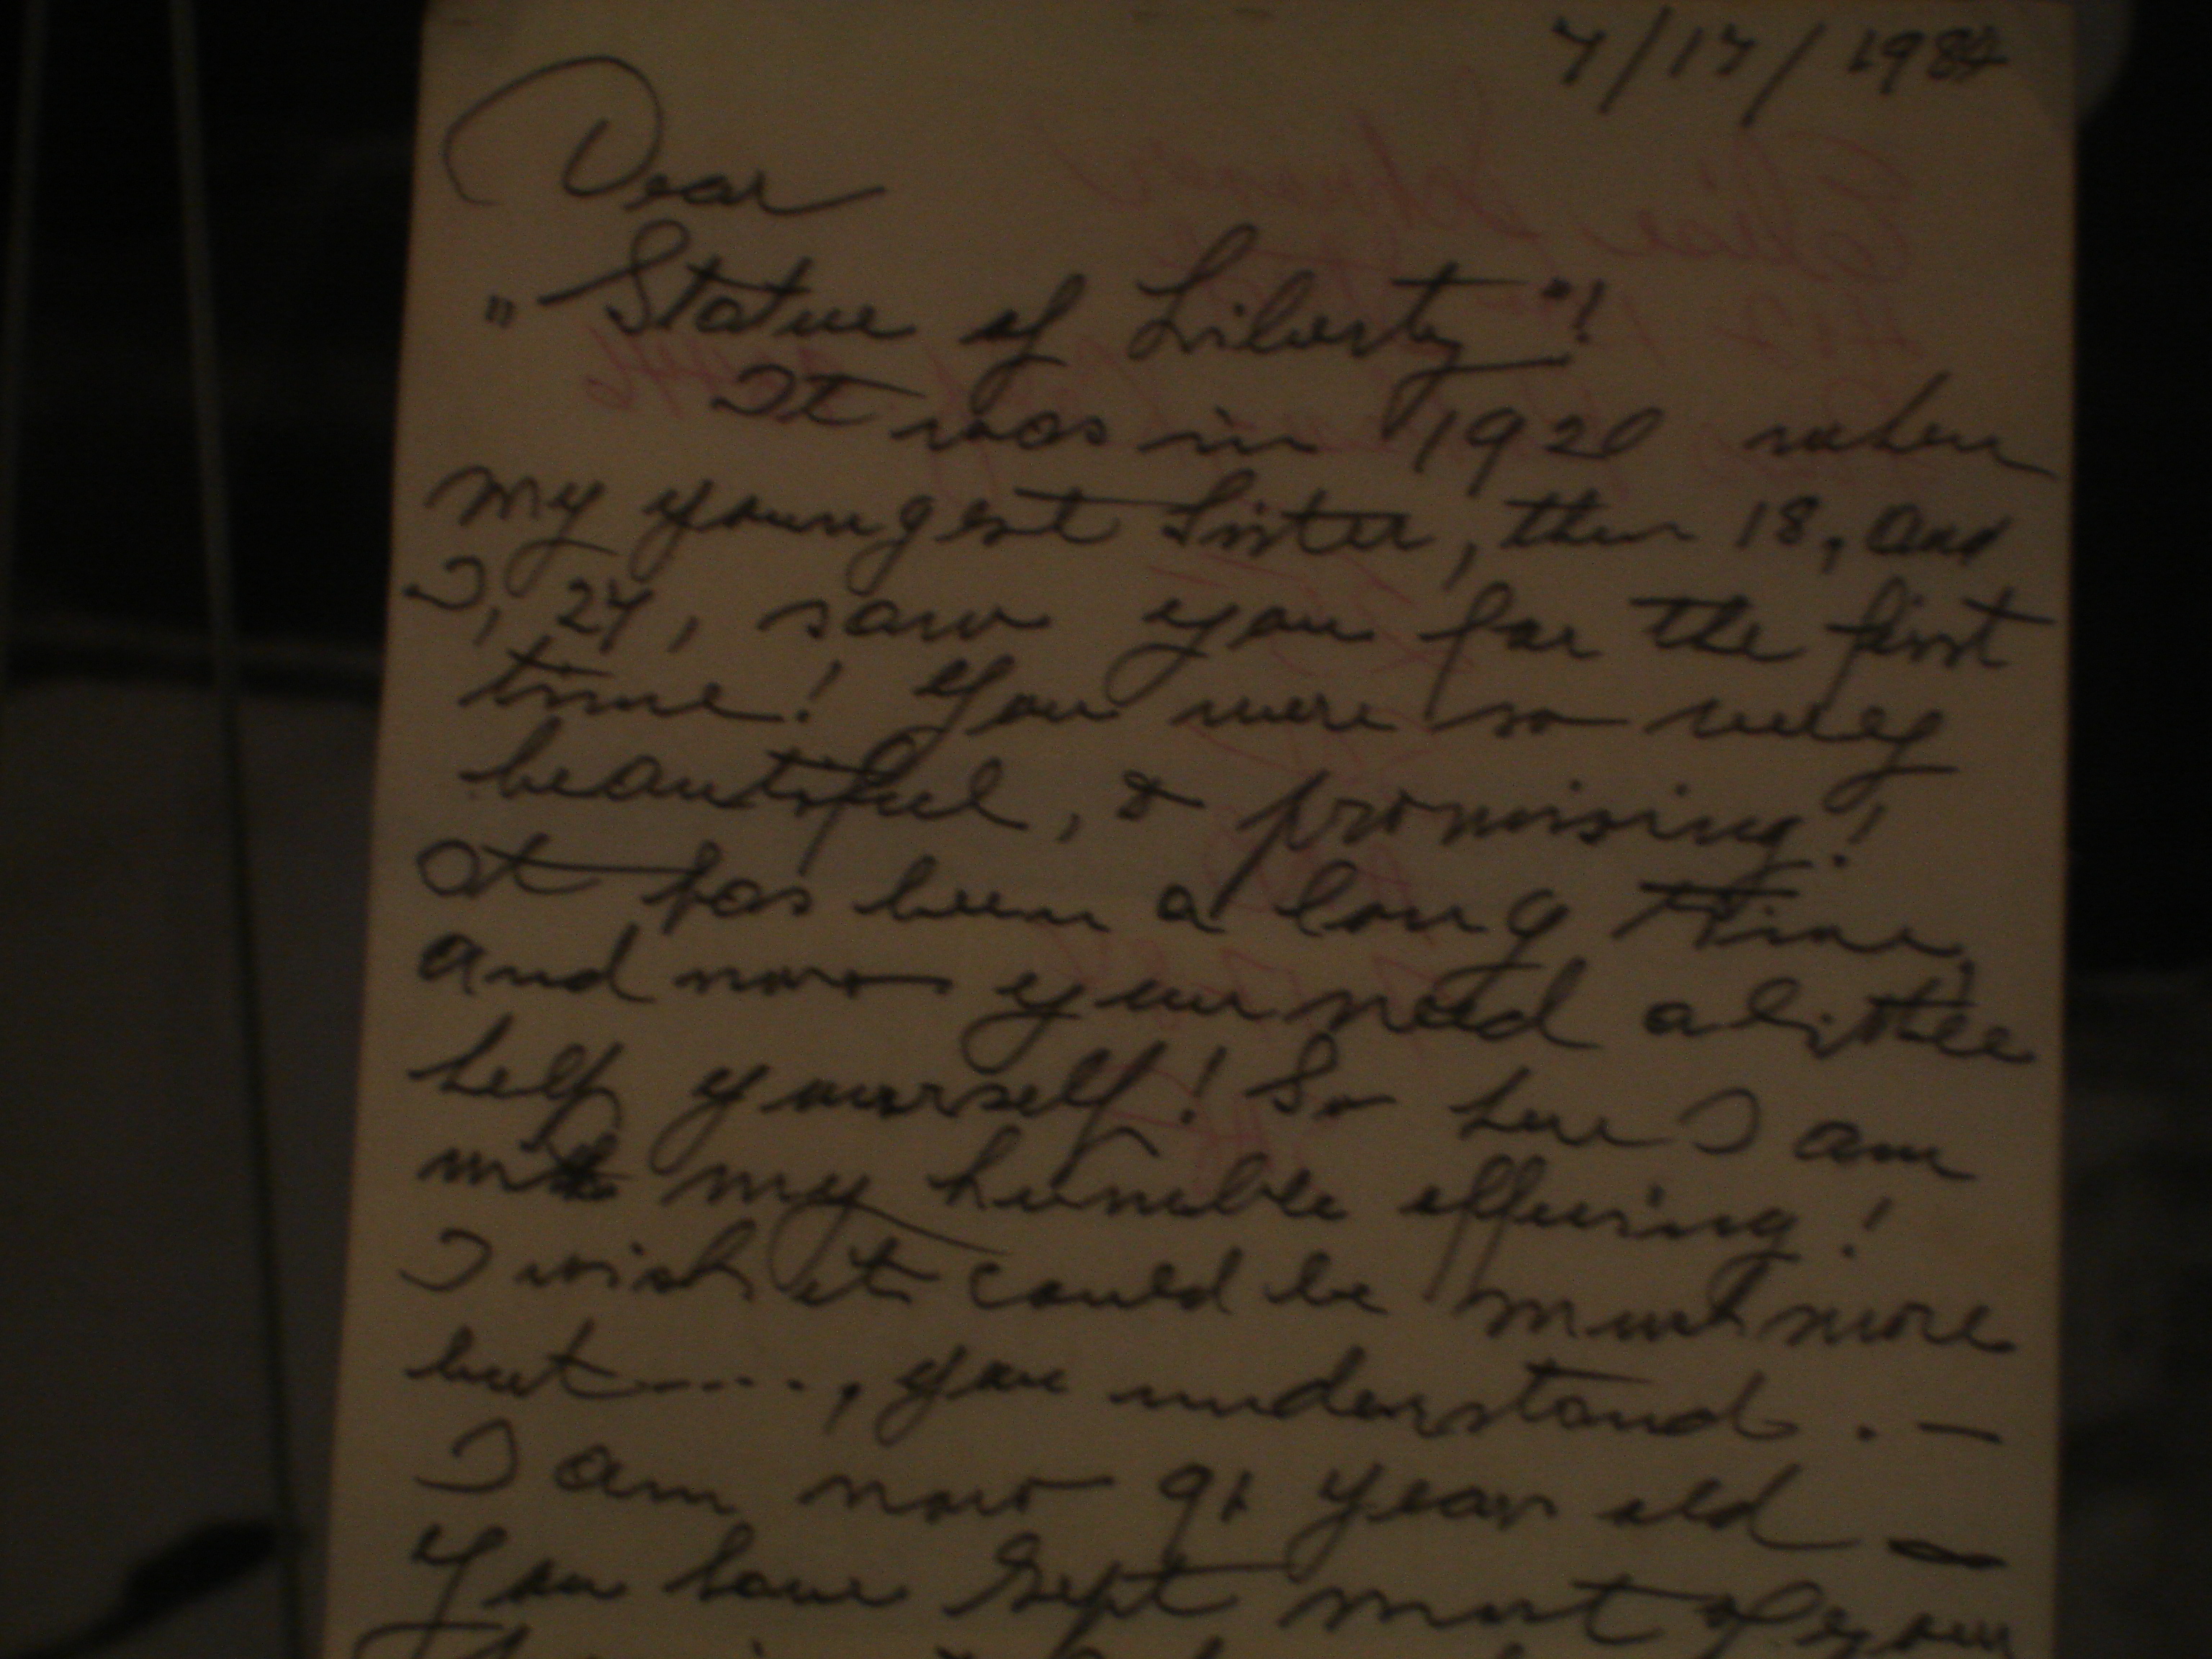 7/17/1984
Dear
„Statue of Liberty"!
It was in 1920 when
my youngest Sister, then 18, and
I, 27, saw you for the first
time! You were so very
beautiful, & promising!
It has been a long time,
and now you need a little
help yourself! So here I am
with my humble offering!
I wish it could be much more
but....., you understand. —
I am now 91 years old —
You have kept most of your